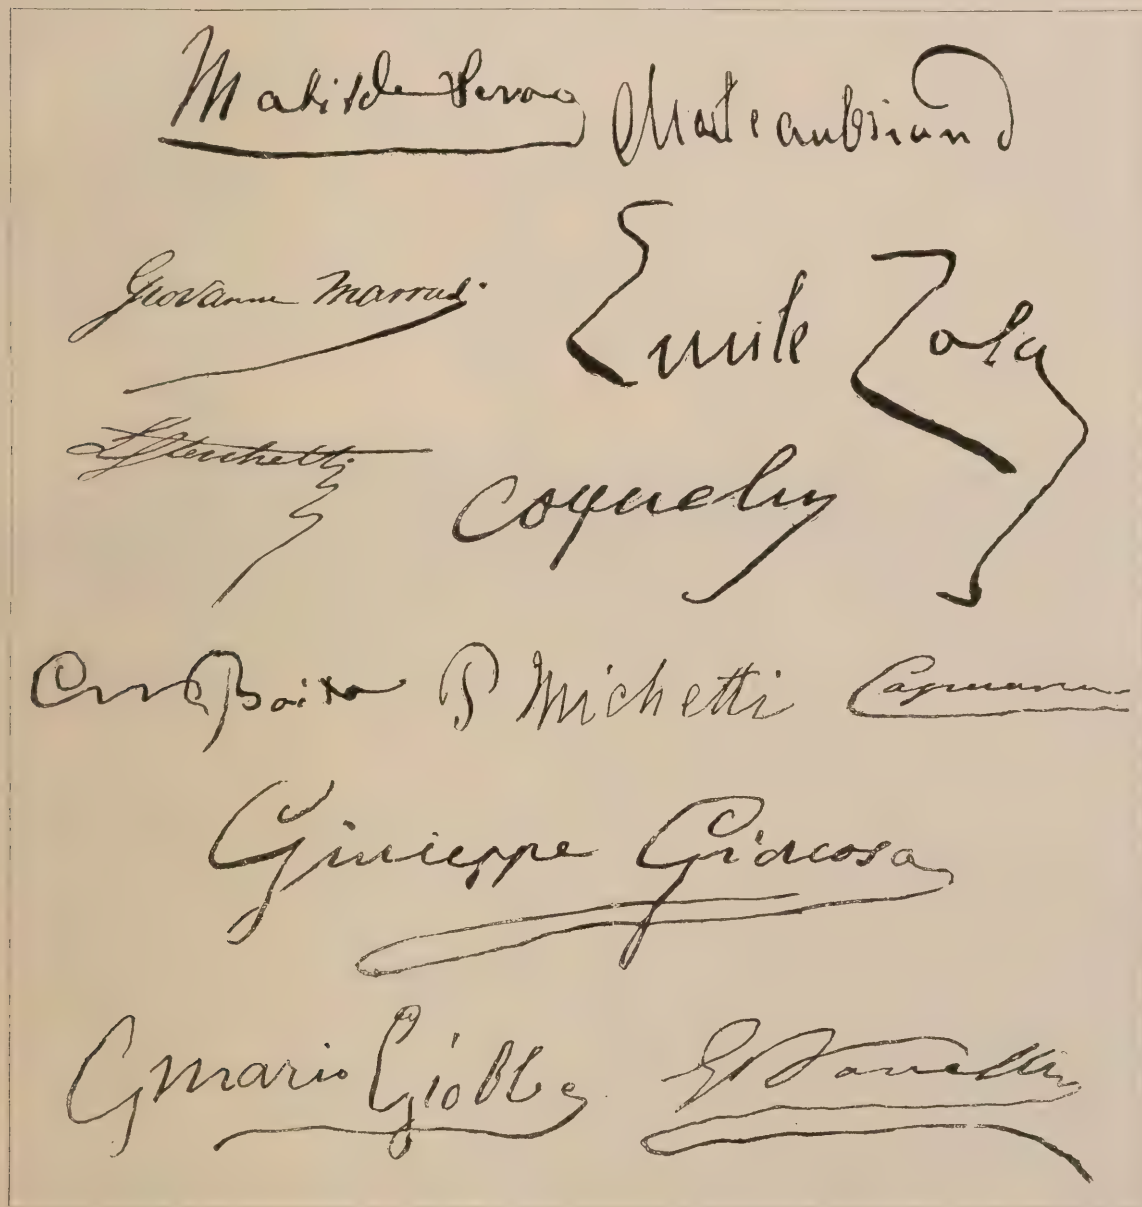 Matilde Serao Chateaubriand
Giovanni Marradi
Emile Zola
LStecchetti
Coquelin
Boito P Michetti Capuana
Giuseppe Giacosa
G Mario Giobbe